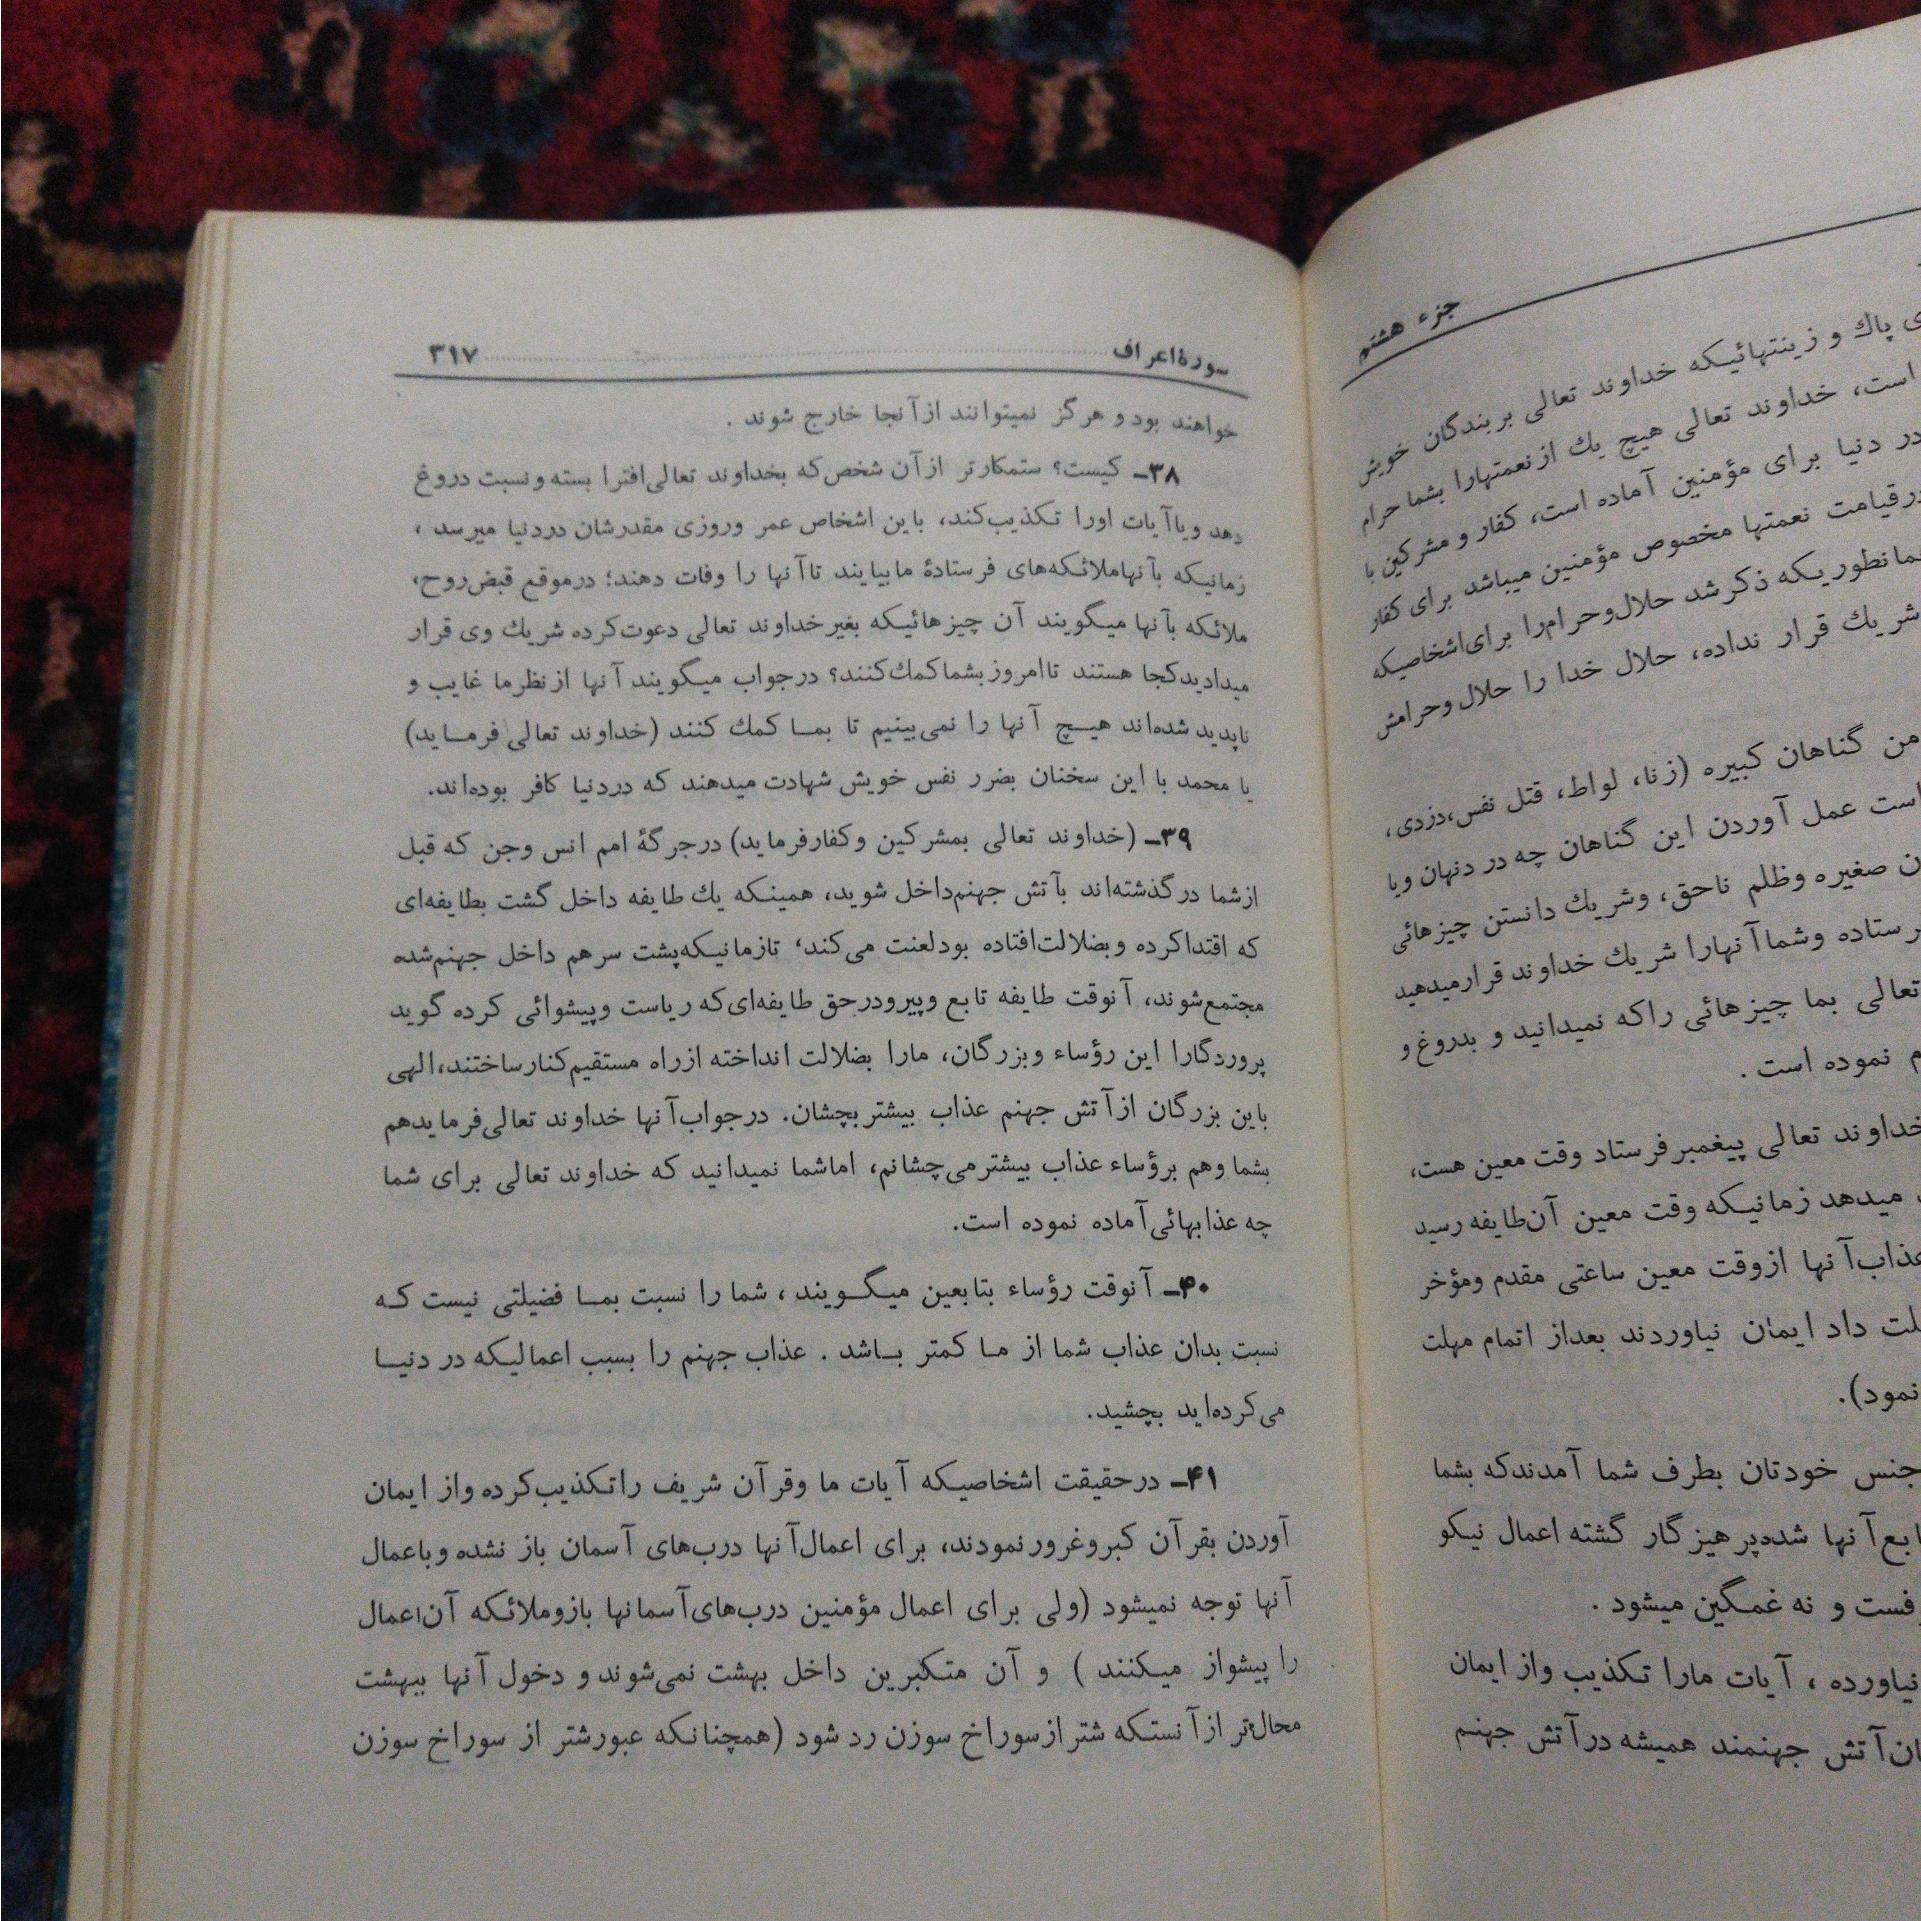 جزء هشتم
ی پاك و زینتهائیکه خداوند تعالی بربندگان خویش
است، خداوند تعالی هیچ یك ازنعمتهارا بشما حرام
در دنیا برای مؤمنین آماده است، کفار و مشرکین با
درقیامت نعمتها مخصوص مؤمنین میباشد برای کفار
همانطوریکه ذکرشد حلال‌وحرام‌را برای‌اشخاصیکه
شریك قرار نداده، حلال خدا را حلال وحرامش
من گناهان کبیره (زنا، لواط، قتل نفس،دزدی،
است عمل آوردن این گناهان چه در دنهان ویا
ن صغیره وظلم ناحق، وشریك دانستن چیزهائی
رستاده وشماآنهارا شریك خداوند قرارمیدهید
تعالی بما چیزهائی راکه نمیدانید و بدروغ و
م نموده است .
خداوند تعالی پیغمبرفرستاد وقت معین هست،
میدهد زمانیکه وقت معین آن‌طایفه رسید
عذاب‌آنها ازوقت معین ساعتی مقدم ومؤخر
لت داد ایمان نیاوردند بعداز اتمام مهلت
نمود).
جنس خودتان بطرف شما آمدندکه بشما
ابع‌آنها شده‌پرهیزگار گشته اعمال نیکو
فست و نه غمگین میشود .
نیاورده ، آیات مارا تکذیب واز ایمان
ان‌آتش جهنمند همیشه درآتش جهنم
سورۀاعراف ۳۱۷
خواهند بود و هرگز نمیتوانند ازآنجا خارج شوند .
۳۸ـ کیست؟ ستمکارتر ازآن شخص‌که بخداوند تعالی‌افترا بسته ونسبت دروغ
دهد ویاآیات اورا تکذیب‌کند، باین اشخاص عمر وروزی مقدرشان دردنیا میرسد ،
زمانیکه بآنهاملائکه‌های فرستادۀ مابیایند تاآنها را وفات دهند؛ درموقع قبض‌روح،
ملائکه بآنها میگویند آن چیزهائیکه بغیرخداوند تعالی دعوت‌کرده شریك وی قرار
میدادیدکجا هستند تاامروزبشماکمك‌کنند؟ درجواب میگویند آنها ازنظرما غایب و
ناپدید شده‌اند هیچ آنها را نمی‌بینیم تا بما کمك کنند (خداوند تعالی فرماید)
یا محمد با این سخنان بضرر نفس خویش شهادت میدهند که دردنیا کافر بوده‌اند.
۳۹ـ (خداوند تعالی بمشرکین وکفارفرماید) درجرگۀ امم انس وجن که قبل
ازشما درگذشته‌اند بآتش جهنم‌داخل شوید، همینکه یك طایفه داخل گشت بطایفه‌ای
که اقتداکرده وبضلالت‌افتاده بودلعنت می‌کند، تازمانیکه‌پشت سرهم داخل جهنم‌شده
مجتمع‌شوند، آنوقت طایفه تابع وپیرودرحق طایفه‌ای‌که ریاست وپیشوائی کرده گوید
پروردگارا این رؤساء وبزرگان، مارا بضلالت انداخته ازراه مستقیم‌کنارساختند،الهی
باین بزرگان ازآتش جهنم عذاب بیشتربچشان. درجواب‌آنها خداوند تعالی‌فرمایدهم
بشما وهم برؤساء عذاب بیشترمی‌چشانم، اماشما نمیدانید که خداوند تعالی برای شما
چه عذابهائی‌آماده نموده است.
۴۰ـ آنوقت رؤساء بتابعین میگویند ، شما را نسبت بما فضیلتی نیست که
نسبت بدان عذاب شما از ما کمتر باشد . عذاب جهنم را بسبب اعمالیکه در دنیا
می‌کرده‌اید بچشید.
۴۱ـ درحقیقت اشخاصیکه آیات ما وقرآن شریف راتکذیب‌کرده واز ایمان
آوردن بقرآن کبروغرورنمودند، برای اعمال‌آنها درب‌های آسمان باز نشده وباعمال
آنها توجه نمیشود (ولی برای اعمال مؤمنین درب‌های‌آسمانها بازوملائکه آن‌اعمال
را پیشواز میکنند ) و آن متکبرین داخل بهشت نمی‌شوند و دخول آنها ببهشت
محال‌تر ازآنستکه شتر ازسوراخ سوزن رد شود (همچنانکه عبورشتر از سوراخ سوزن